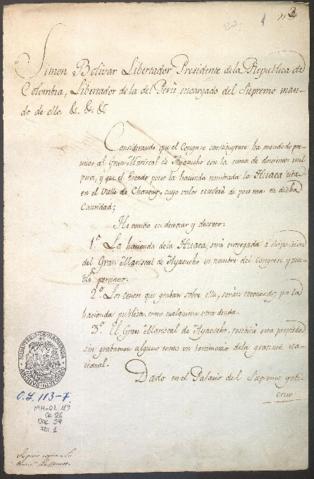 Simon Bolivar Libertador Presidente de la Republica de
Colombia, Libertador de la del Perú, encargado del Supremo man-
do de ella &. &. &
Considerando que el Congreso constituyente ha mandado pre-
miar al Gran Mariscal de Ayacucho con la suma de doscientos mil
pesos, y que el Estado posee la hacienda nombrada la Huaca sita
en el Valle de Chancay, cuyo valor es de poco mas
Cantidad;
He venido en decretar y decreto:
1º La hacienda de la Huaca, será entregada a disposicion
del Gran Mariscal de Ayacucho en nombre del Congreso y pue-
blo peruano.
2º Los censos que graban sobre ella, serán reconocidos por la
hacienda publica como cualquiera otra deuda.
3º El Gran Mariscal de Ayacucho, recibirá esta propiedad
sin gravamen alguno como un testimonio de la gratitud na-
cional.
Dado en el Palacio del Supremo gobi-
erno
O.L. 113-7